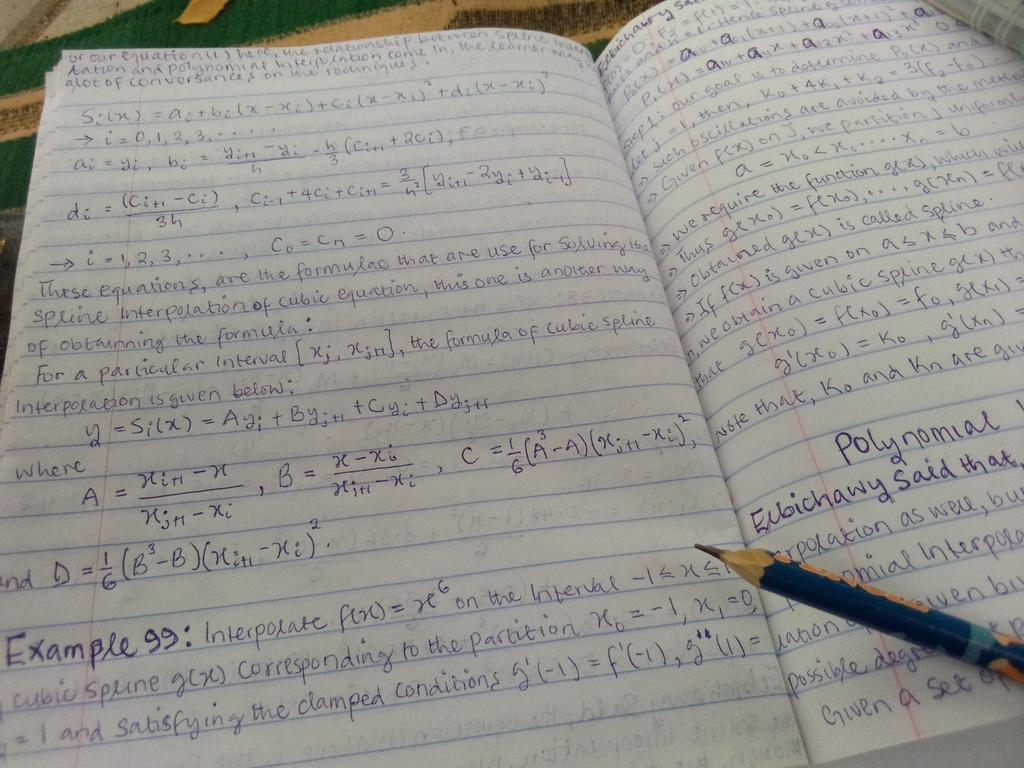 or our equation (1) here, the relationship between spline inter
tation and polynomial interpolation come in, the learner may
alot of conversances on the techniques.
Si(x) = ai + bi(x - xi) + ci(x - xi)² + di(x - xi)³
→ i = 0, 1, 2, 3, .....
ai = yi, bi = (yi+1 - yi)/h - h/3 (Ci+1 + 2Ci),
di = (Ci+1 - Ci)/3h, Ci-1 + 4Ci + Ci+1 = 3/h² [yi+1 - 2yi + yi-1]
→ i = 1, 2, 3, ....., C0 = Cn = 0.
These equations, are the formulae that are use for solving the
spline Interpolation of cubic equation, this one is another way
of obtainning the formula:
For a particular interval [xj, xj+1], the formula of cubic spline
Interpolation is given below:
y = Si(x) = Ayi + Byj+1 + Cyi + Dyj+1
where
A = (xi+1 - x)/(xj+1 - xi), B = (x - xi)/(xj+1 - xi), C = 1/6 (A³ - A)(xj+1 - xi)²,
and D = 1/6 (B³ - B)(xi+1 - xi)².
Example 99: Interpolate f(x) = x⁶ on the Interval -1 ≤ x ≤
cubic spline g(x) corresponding to the partition x0 = -1, x1 = 0,
= 1 and satisfying the clamped conditions g'(-1) = f'(-1), g''(1) =
Po(x) = a00 + a01(x+1) + a
P1(x) = a10 + a11x + a12x² + a13x³
Step 1: our goal is to determine Po(x) and
Let j = 1, then, K0 + 4K1 + K2 = 3(F2 - F0).
→ such oscillations are avoided by the method
→ Given f(x) on J, we partition J uniformly
a = x0 < x1 ..... xn = b
→ We require the function g(x), which
→ Thus g(x0) = f(x0), ....., g(xn) = f(x
→ Obtained g(x) is called spline.
→ If f(x) is given on a ≤ x ≤ b and
n, we obtain a cubic spline g(x) th
that g(x0) = f(x0) = f0, g(x1) =
g'(x0) = K0, g'(xn) =
Note that, K0 and Kn are give
Polynomial I
Elbichawy Said that,
rpolation as well, bu
mial Interpola
lation
possible degre
Given a set of